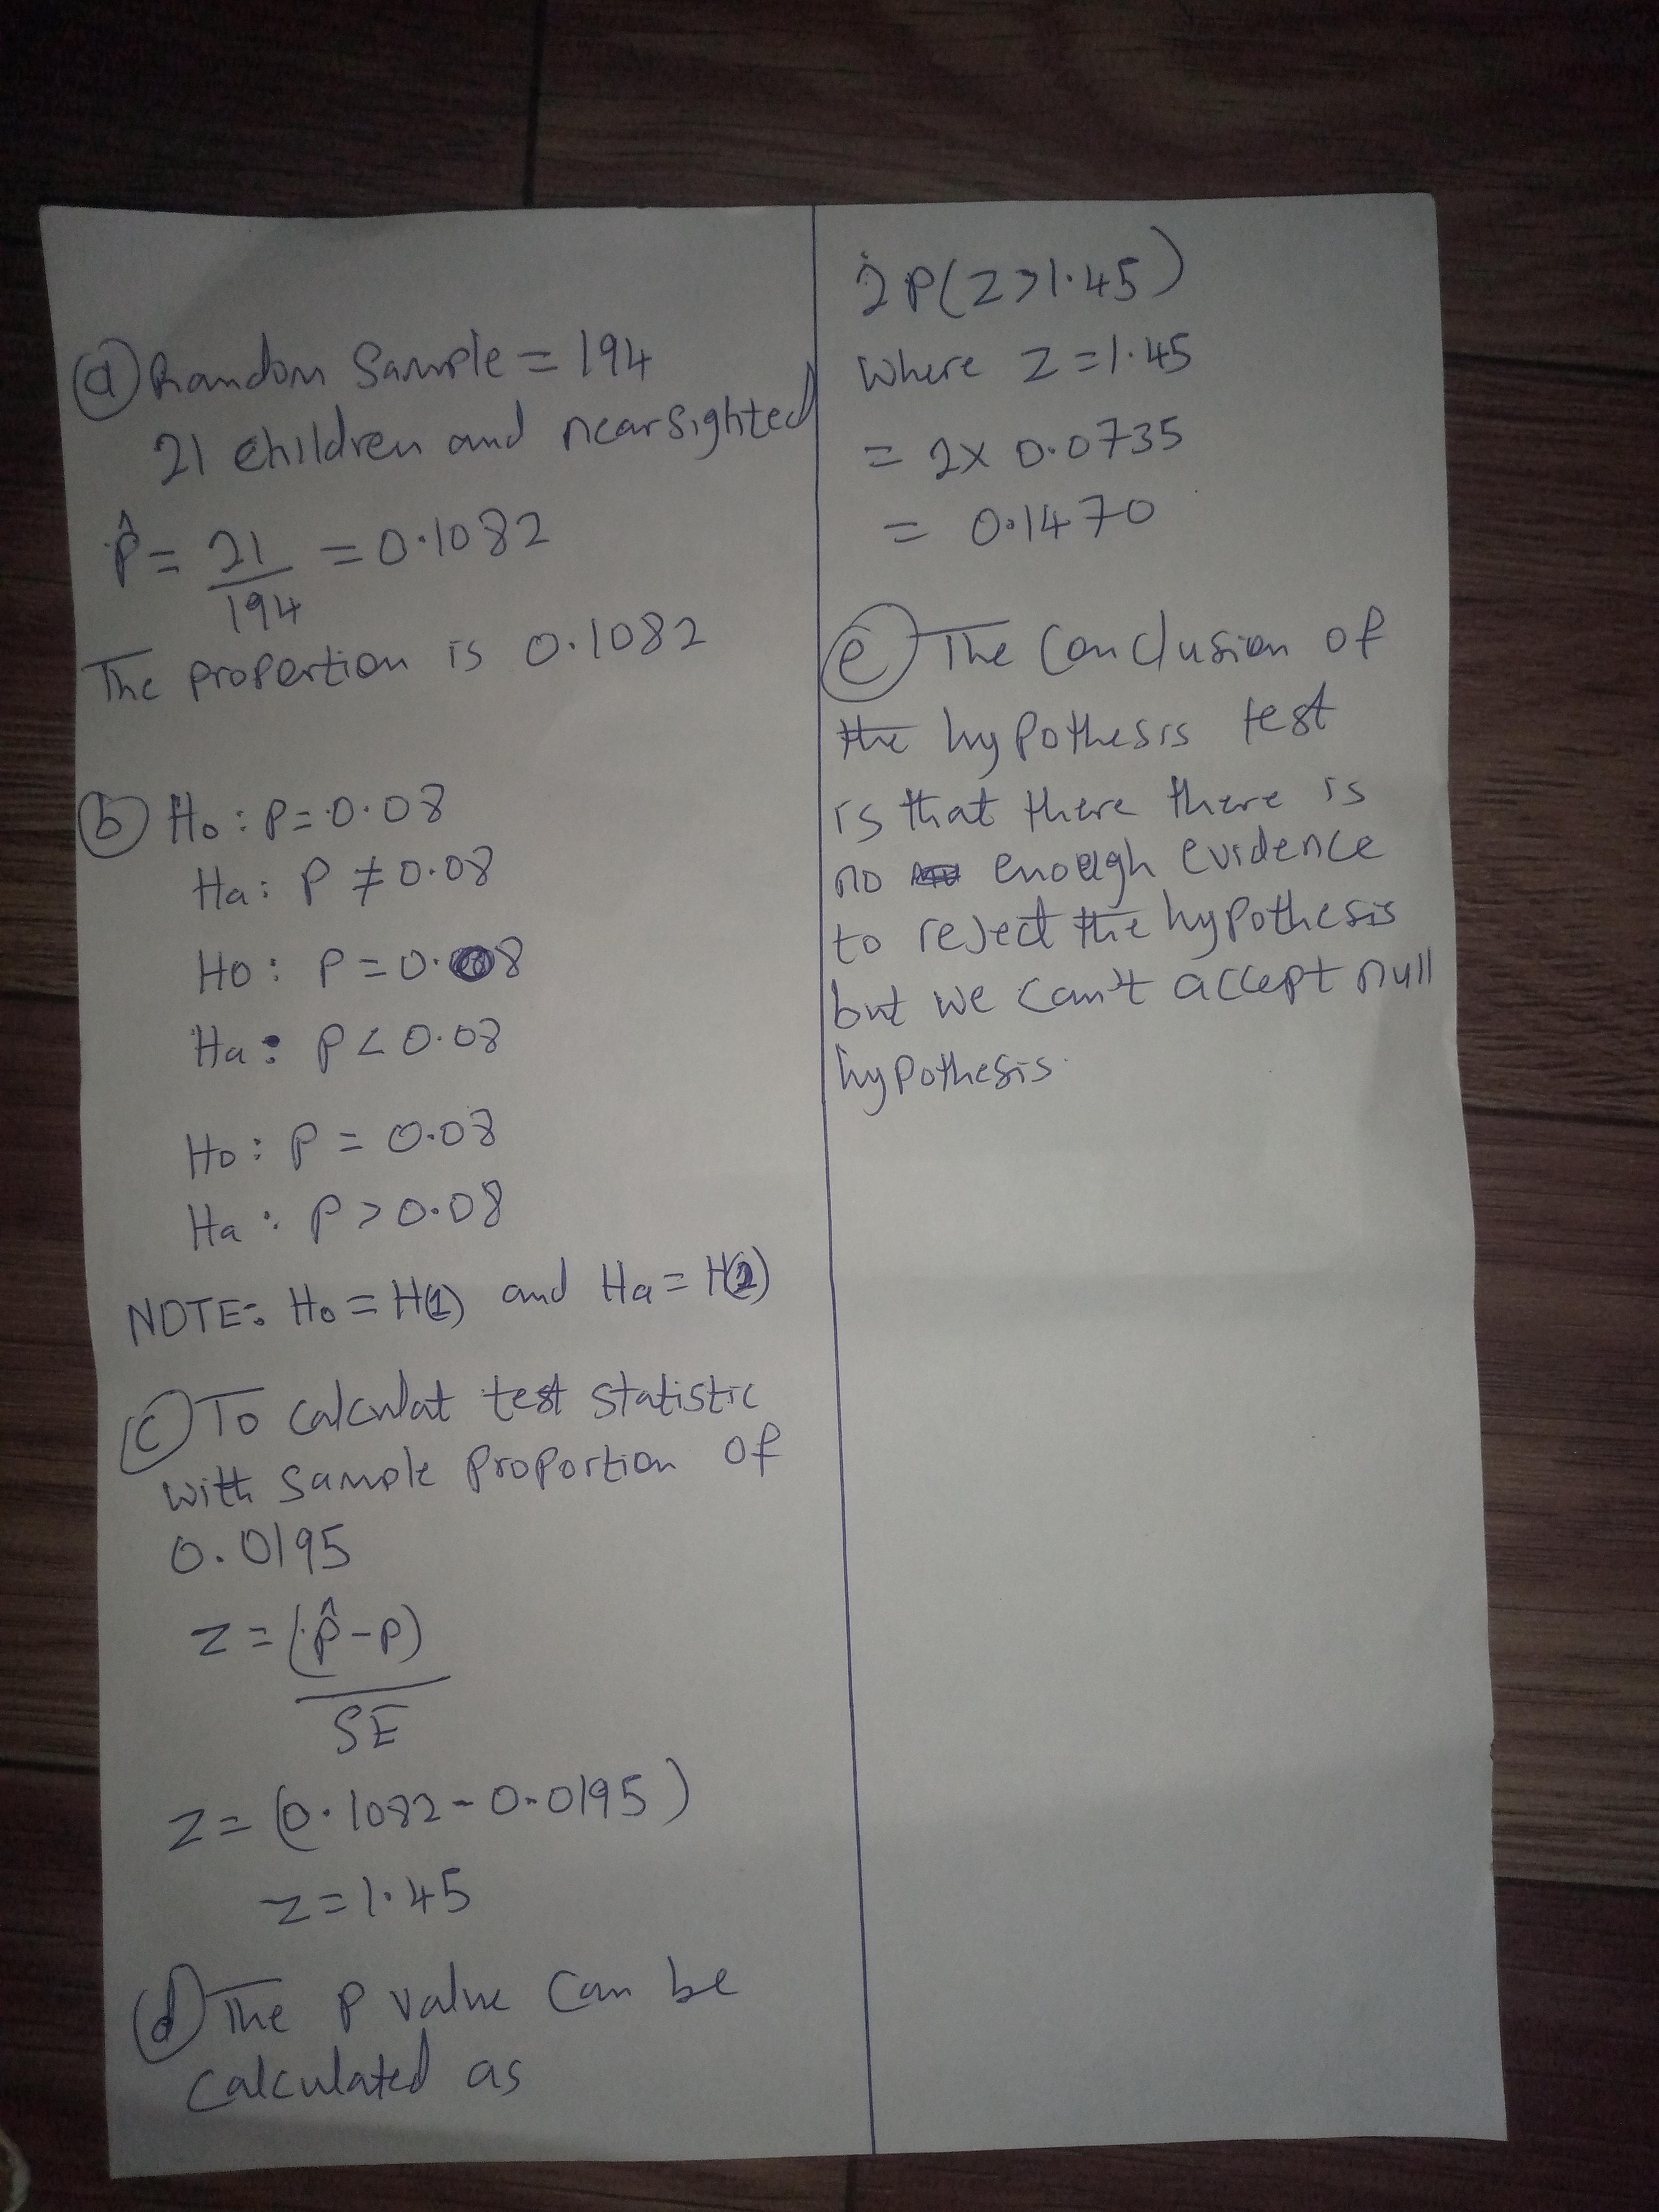 (a) Random Sample = 194
21 children and nearsighted
p̂ = 21/194 = 0.1082
The proportion is 0.1082
(b) Ho : P = 0.08
Ha : P ≠ 0.08
Ho : P = 0.08
Ha : P < 0.08
Ho : P = 0.08
Ha : P > 0.08
NOTE: Ho = H(1) and Ha = H(2)
(c) To calculat test statistic
with sample proportion of
0.0195
z = (p̂ - p)
SE
z = (0.1082 - 0.0195)
z = 1.45
(d) The P value can be
calculated as
2P(Z>1.45)
Where Z = 1.45
= 2 x 0.0735
= 0.1470
(e) The conclusion of
the hypothesis test
is that there there is
no enough evidence
to reject the hypothesis
but we can't accept null
hypothesis.